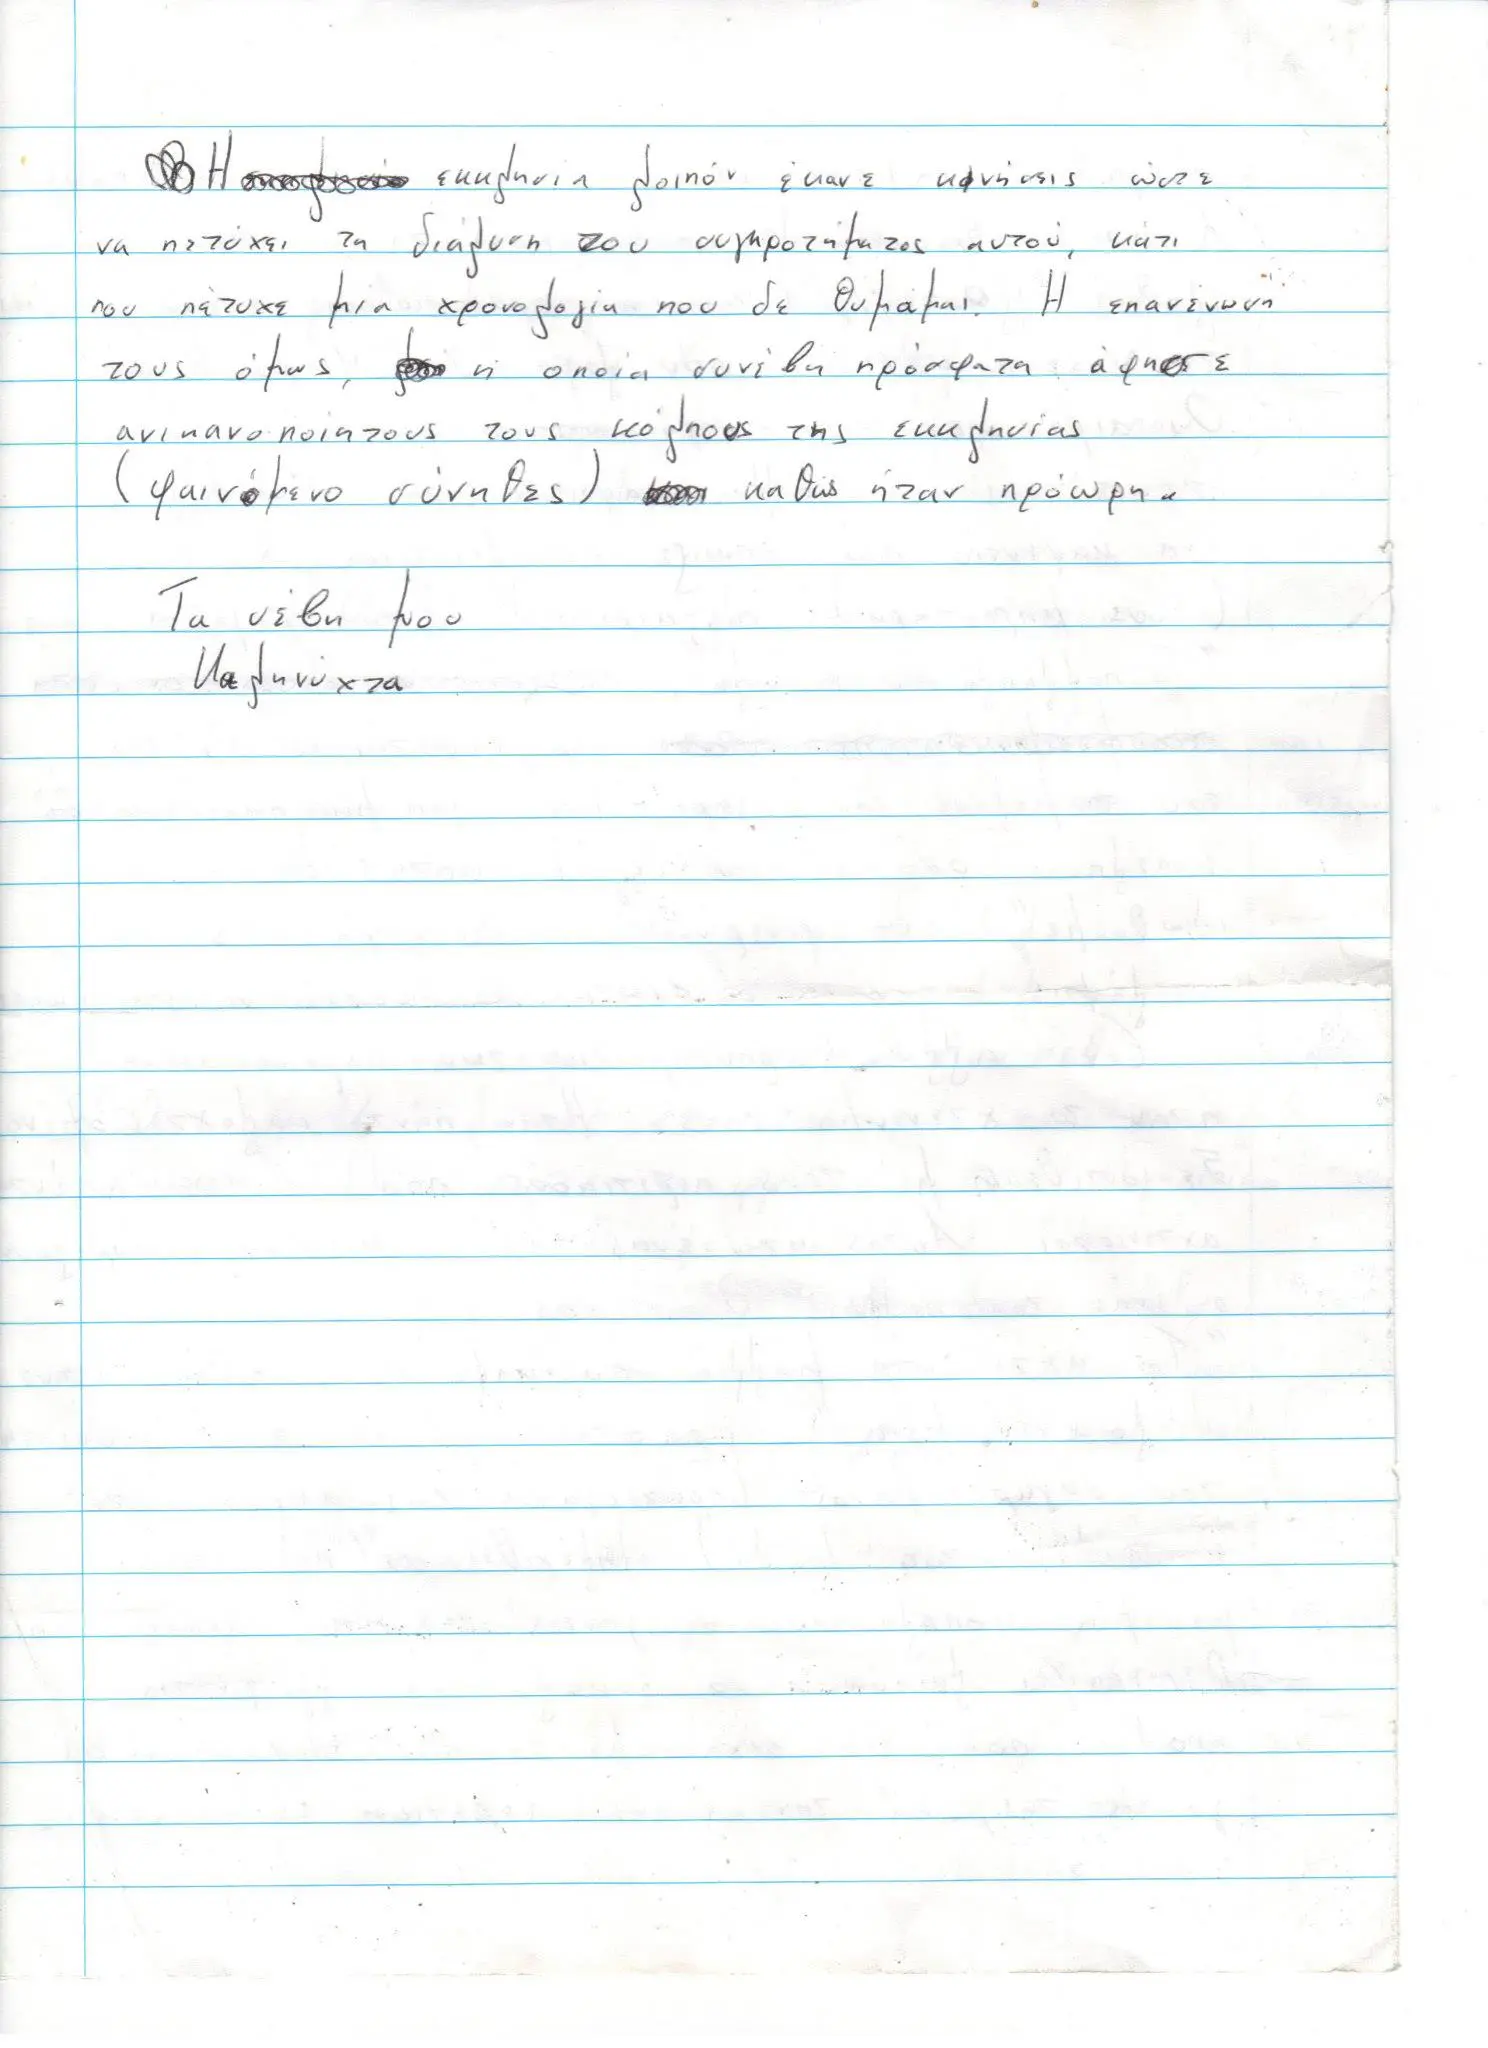 Η εκκλησία λοιπόν έκανε κινήσεις ώστε
να πετύχει τη διάλυση του συγκροτήματος αυτού, κάτι
που πέτυχε μια χρονολογία που δε θυμάμαι. Η επανένωσή
τους όμως, η οποία συνέβη πρόσφατα άφησε
ανικανοποίητους τους κόλπους της εκκλησίας
(φαινόμενο σύνηθες) καθώς ήταν πρόωρη.
Τα σέβη μου
Καληνύχτα